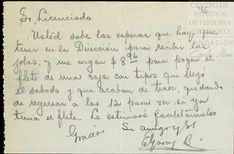 Sr. Licenciado.
Usted sabe las esperas que hay que
tener en la Dirección para recibir las
solas, y me urgen $8.96 para pagar el
flete de una caja con tipos que llegó
el sabado y que acaban de traer, quedando
de regresar a las 12 para ver si ya
tenía el flete. Le estimaré facilitármelos
Gracias
Su amigo y S.S.
CENTRO
ESTUDIOS
DE HISTORIA
DE MEXICO